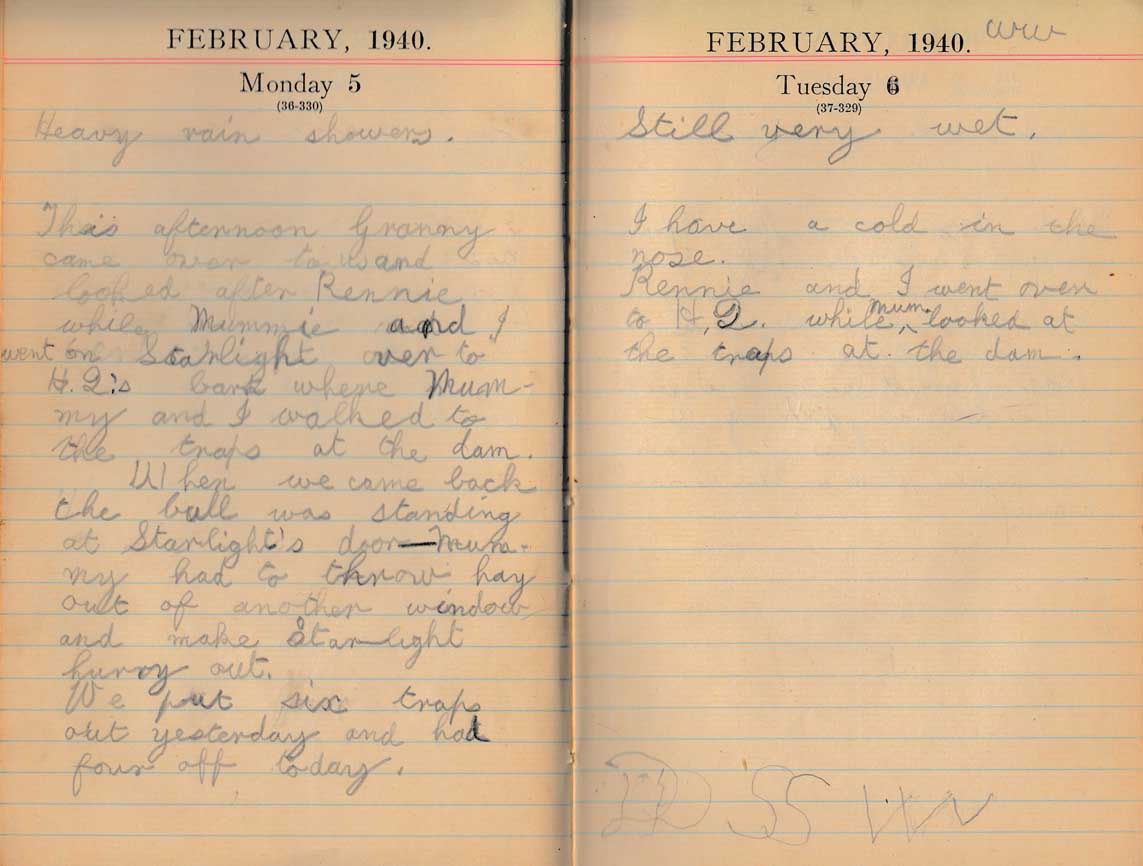 FEBRUARY, 1940.
Monday 5
(36-330)
Heavy rain showers.
This afternoon Granny
came over to us and
looked after Rennie
while Mummie and I
went on Starlight over to
H.Q's bark where Mum-
my and I walked to
the traps at the dam.
When we came back
the bull was standing
at Starlight's door—Mum-
my had to throw hay
out of another window
and make Starlight
hurry out.
We put six traps
out yesterday and had
four off today.
FEBRUARY, 1940.
Tuesday 6
(37-329)
Still very wet.
I have a cold in the
nose.
Rennie and I went over
to H.Q. while mum looked at
the traps at the dam.